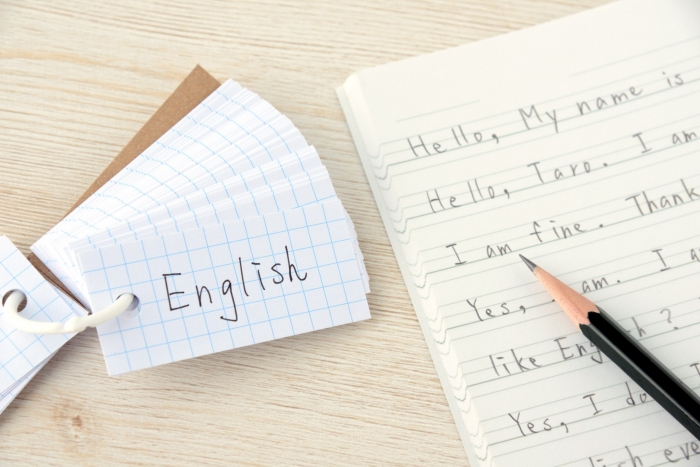 English
Hello, My name is
Hello, Taro. I am
I am fine. Thank
Yes, am. I
like English?
Yes, I do